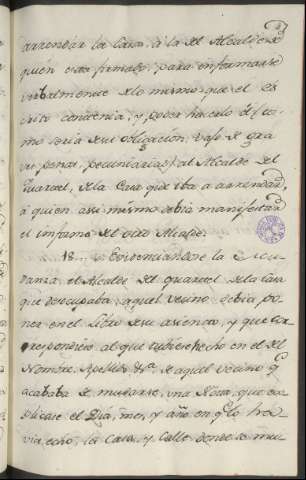 arrendar la Casa, à la del Alcalde de
quien está firmado, para informarse
verbalmente de lo mismo que el es
crito contenia, y poder hacerlo él (co
mo seria de su obligación, vajo de gra
ves penas pecuniarias) al Alcalde del
Quartel, de la Casa que iba a arrendar,
à quien assi mismo debia manifestar
el informe del otro Alcalde.
18... Evidenciandose la Mu
danza, el Alcalde del quartel de la Casa
que desocupaba, aquel vecino debia po
ner en el Libro de su asiento, y que cor
respondiese al que tubiese hecho en el del
Nombre, Apellido &c.ª de aquel vecino q.e
acababa de mudarse, una Nota, que ex
plicase el Dia, mes, y año en q.e lo hav
via echo, la Casa, y Calle donde se mu